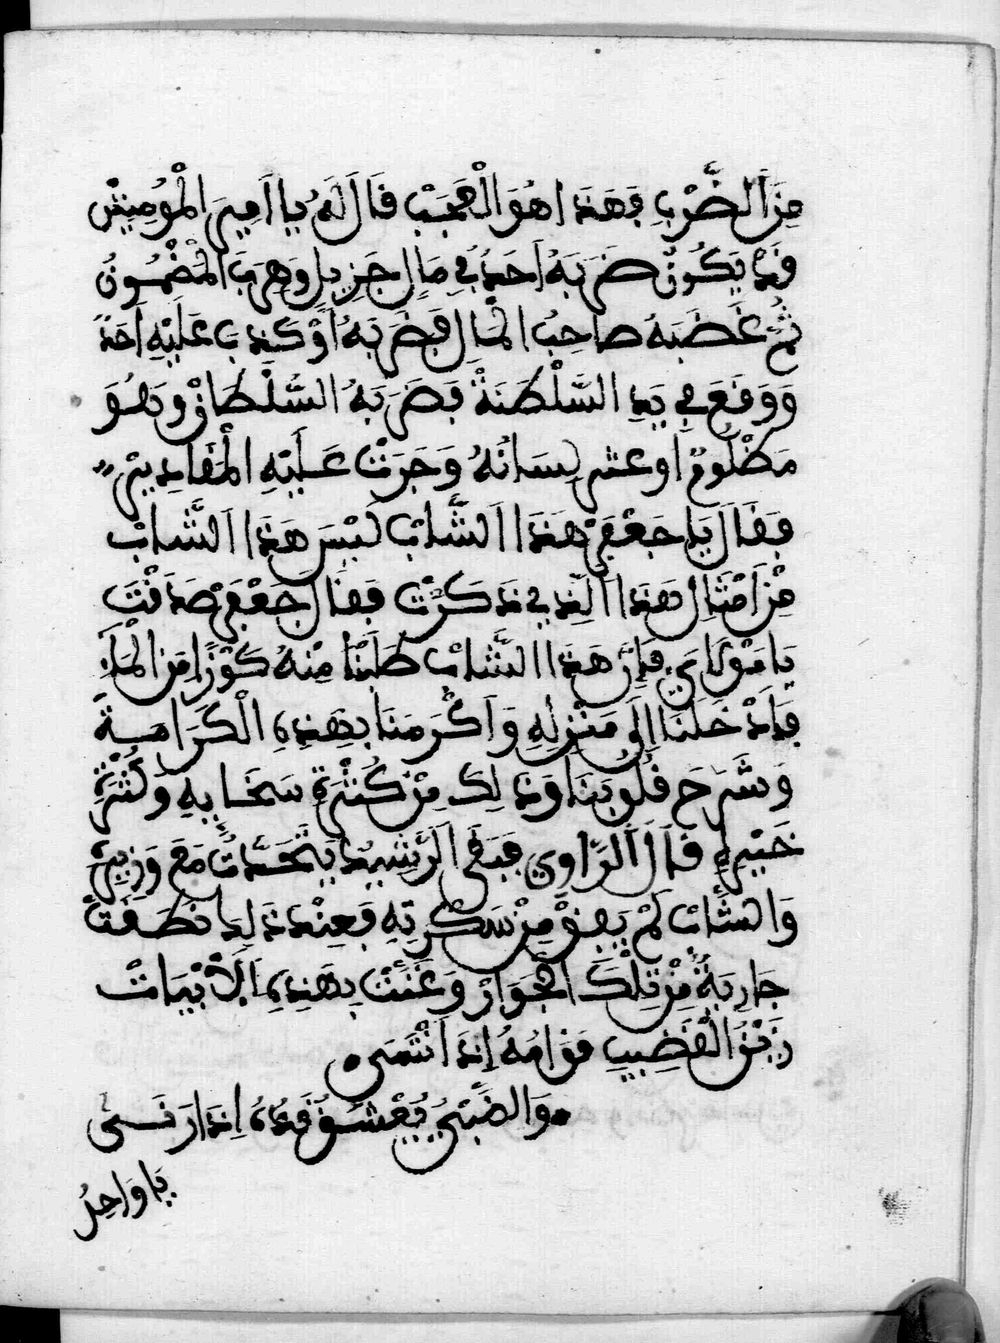 مِنَ الضَّرْبِ فَهَذَا هُوَ الْعَجَبْ فَالَ لَهُ يا أمير الْمُومِنِينْ
فَدْ يَكُونُ ضَرَبَهُ أَحَدٌ فِي مَالٍ جَزِيلٍ وَهَرَبَ الْمَضْمُونُ
ثُمَّ غَضَبَهُ صَاحِبُ الْمَالِ فَضَرَبَهُ أَوْ كَذَبَ عَلَيْهِ أَحَدْ
وَوَفَعَ فِي يَدِ السَّلْطَنَةْ فَضَرَبَهُ السُّلْطَانْ وَهُوَ
مَظْلُومْ أو عثر لِسَانُهُ وَجَرَتْ عَلَيْهِ الْمَفَادِيرْ
فَفَالَ يَا جَعْفَرْ هَذَا الشَّابْ لَيْسَ هَذَا الشَّابْ
مِنْ أَمْثَالِ هَذَا الَّذِي ذَكَرْتَ فَفَالَ جَعْفَرْ صَدَفْتَ
يَا مَوْلَايَ فَإِنَّ هَذَا الشَّابْ طَلَبْنَا مِنْهُ كَوْزًا مِنَ الْمَاءِ
فَادْخَلَنَا إِلَى مَنْزِلِهِ وَأَكْرَمَنَا بِهَذِهِ الْكَرَامَةْ
وَشَرَحَ فُلُوبَنَا وَذَلِكَ مِنْ كُثْرَةِ سَخَايِهِ وَكُثْرَةِ
خَيْرِهِ فَالَ الرَّاوِي فَبَفَى الرَّشِيدُ يَتَحَدَّثُ مَعَ وَزِيرِهِ
وَالشَّابْ لَمْ يَفِوْ مِنْ سَكْرَتِهِ فَعِنْدَ ذَلِكَ نَطَفَتْ
جَارِيَةٌ مِنْ تِلْكَ الْجَوَارْ وَغَنَّتْ بِهَذِهِ الْأَبْيَاتْ
زَيْنُ الْفَضِيبِ فَوَامُهُ إِذَا انْثَنَى
وَالضَّبْيُ يُعْشَوُ فَدُّهُ إِذَا رَنَى
يَا وَاحِدُ